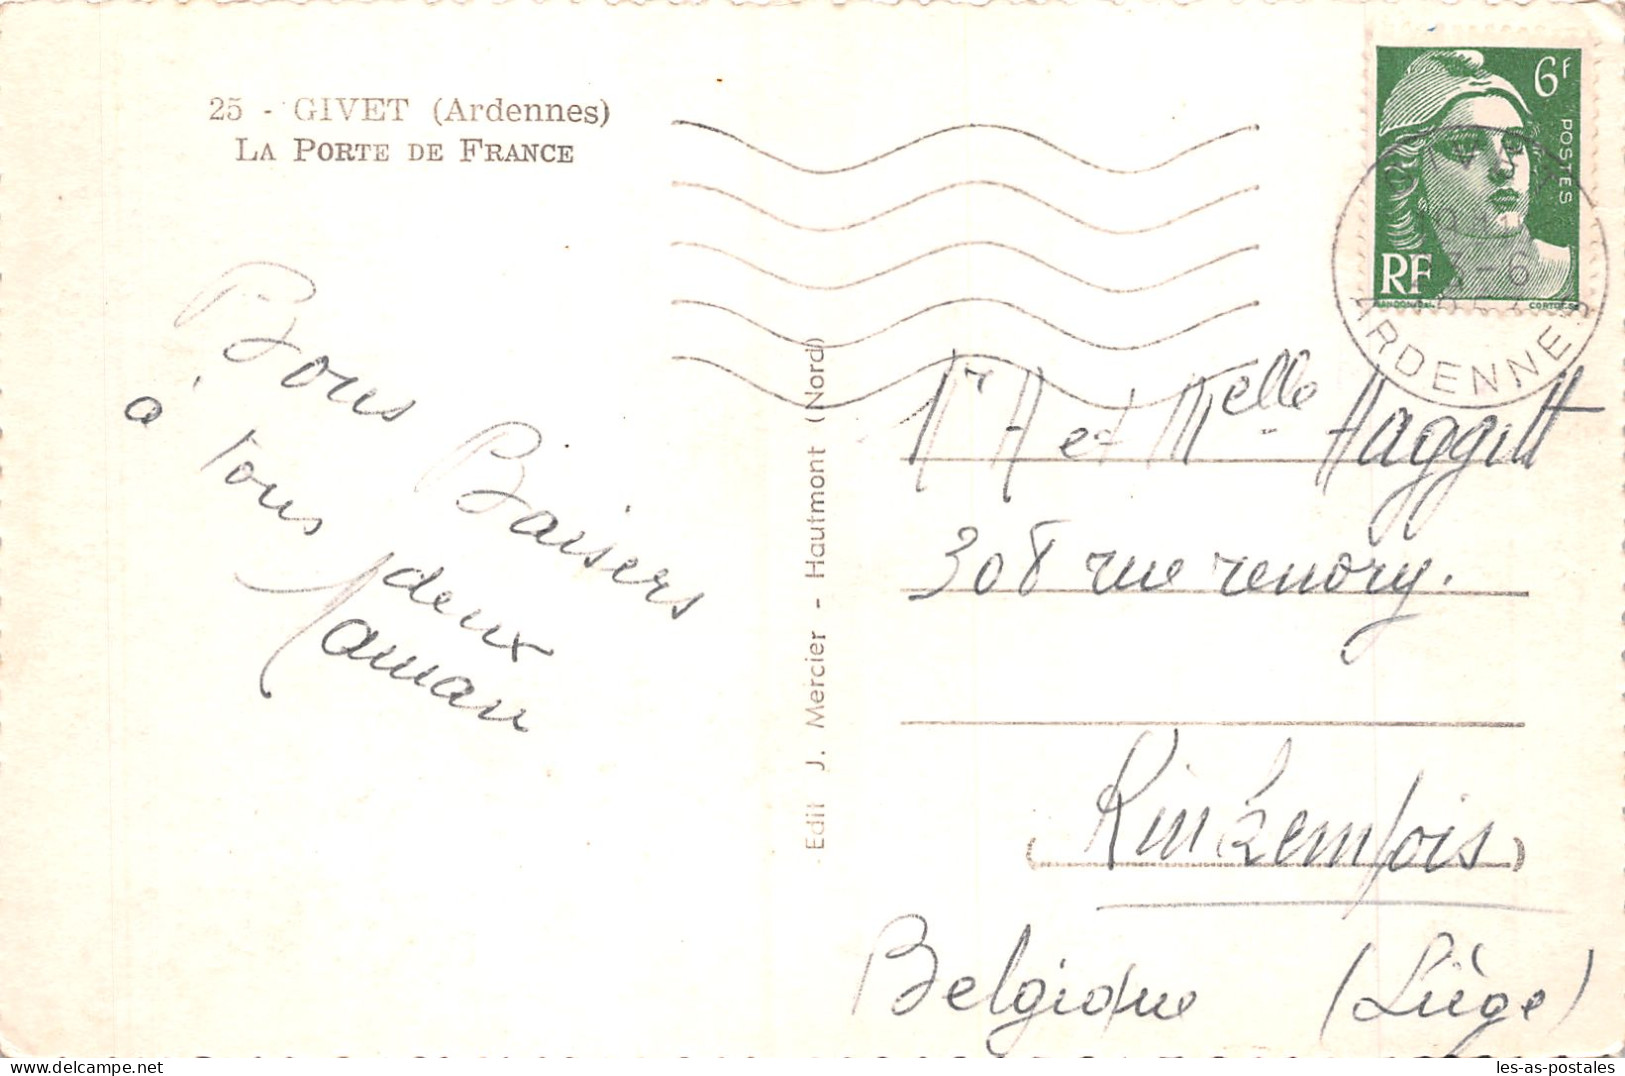 25 - GIVET (Ardennes)
LA PORTE DE FRANCE
Bons Baisers
à tous deux
Maman
Edit J. Mercier - Hautmont (Nord)
6F
POSTES
RF
GANDON DEL.
CORTOT SC
-6
ARDENNES
Mr A et Melle Haggitt
308 rue renory.
(Kinkempois)
Belgique (Liège)
les-as-postales